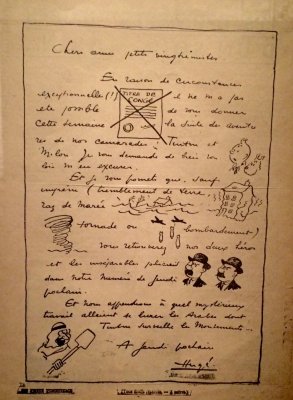 Chers amis petits vingtièmistes
En raison de circonstances
exceptionnelles (!)
TITRE DE CONGÉ
il ne m'a pas
été possible
de vous donner
cette semaine
la suite des aventu
res de nos camarades, Tintin et
Milou. Je vous demande de bien vou
loir m'en excuser.
Et je vous promets que, sauf
imprévu (tremblement de terre,
raz de marée
tornade ou
bombardement)
vous retrouverez nos deux héros
et les inséparables policiers
dans notre numéro de Jeudi
prochain.
Et nous apprendrons à quel mystérieux
travail allaient se livrer les Arabes dont
Tintin surveille les mouvements...
A jeudi prochain
Hergé